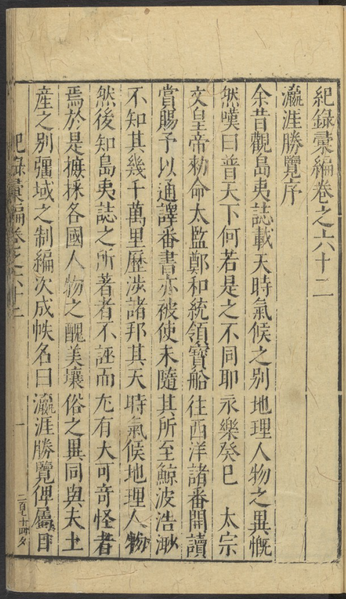 紀錄彙編卷之六十二
瀛涯勝覽序
余昔觀島夷誌載天時氣候之別地理人物之異慨
然嘆曰普天下何若是之不同耶永樂癸巳　太宗
文皇帝勅命太監鄭和統領寶船往西洋諸番開讀
賞賜予以通譯番書亦被使末隨其所至鯨波浩渺
不知其幾千萬里歷涉諸邦其天時氣候地理人物
然後知島夷誌之所著者不誣而尤有大可奇怪者
焉於是摭採各國人物之醜美壤俗之異同與夫土
產之別彊域之制編次成帙名曰瀛涯勝覽俾屬目
紀錄彙編卷之六十二
一